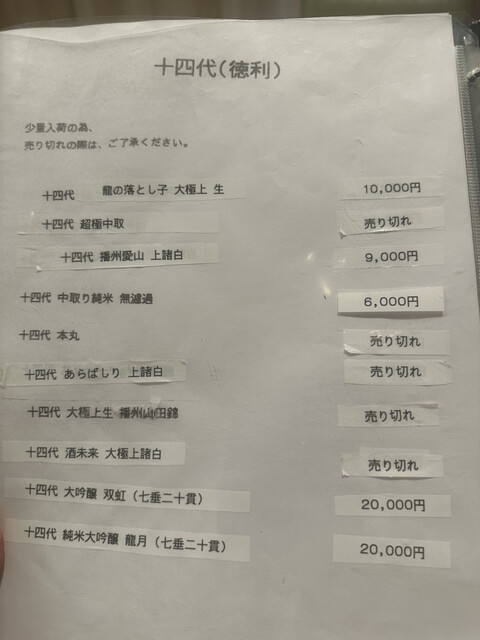 十四代(徳利)
少量入荷の為、
売り切れの際は、ご了承ください。
十四代 龍の落とし子 大極上 生 10,000円
十四代 超極中取 売り切れ
十四代 播州愛山 上諸白 9,000円
十四代 中取り純米 無濾過 6,000円
十四代 本丸 売り切れ
十四代 あらばしり 上諸白 売り切れ
十四代 大極上生 播州山田錦 売り切れ
十四代 酒未来 大極上諸白 売り切れ
十四代 大吟醸 双虹(七垂二十貫) 20,000円
十四代 純米大吟醸 龍月(七垂二十貫) 20,000円